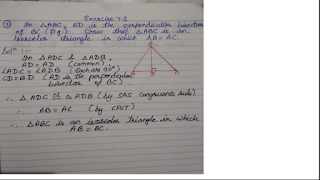 Exercise 7.2
② In △ABC, AD is the perpendicular bisector
of BC (Fig.). Show that △ABC is an
isosceles triangle in which AB = AC.
Sol<sup>n</sup> :-
In △ADC & △ADB,
AD = AD (common)
∠ADC = ∠ADB (Each as 90°)
CD = BD (AD is the perpendicular
bisector of BC)
∴ △ADC ≅ △ADB (by SAS congruence rule)
∴ AB = AC (by CPCT)
∴ △ABC is an isosceles triangle in which
AB = AC.